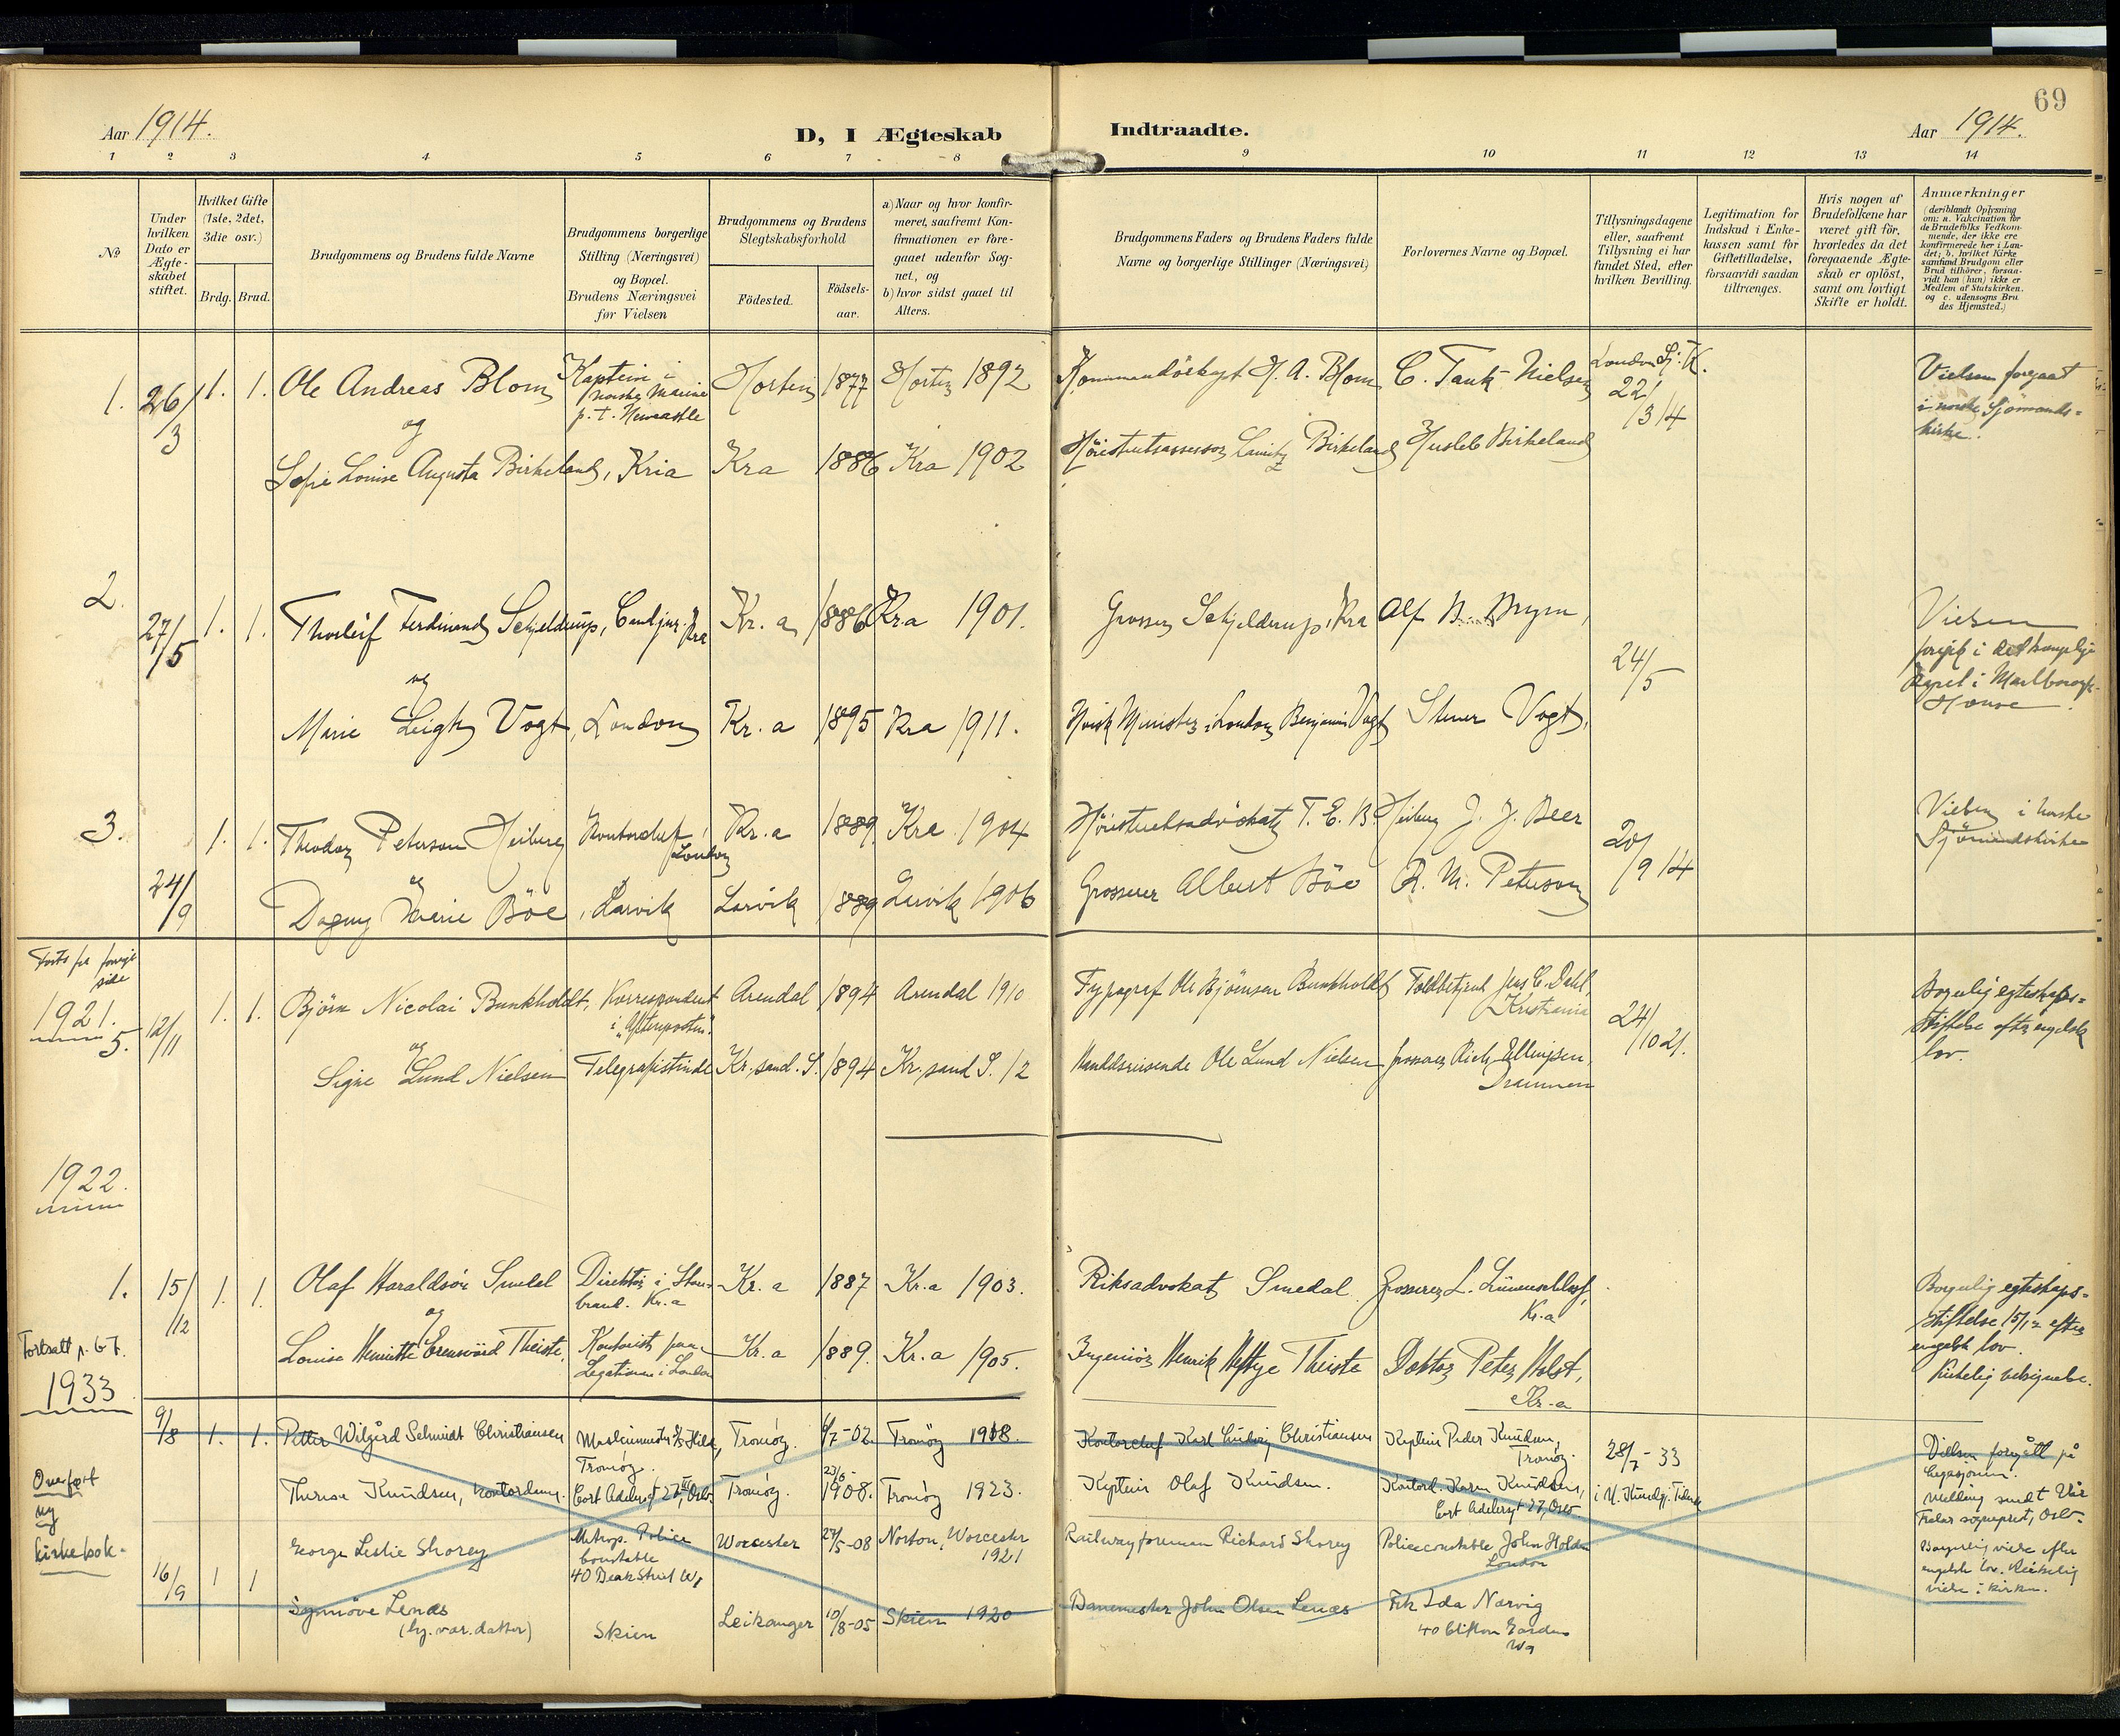 69
Aar 1914.
D, I Ægteskab Indtraadte.
Aar 1914.
1 2 3 4 5 6 7 8 9 10 11 12 13 14
No
Under hvilken Dato er Ægteskabet stiftet.
Hvilket Gifte (1ste, 2det, 3die osv.)
Brdg. Brud.
Brudgommens og Brudens fulde Navne
Brudgommens borgerlige Stilling (Næringsvei) og Bopæl. Brudens Næringsvei før Vielsen
Brudgommens og Brudens Slegtskabsforhold
Födested.
Födsels-aar.
a) Naar og hvor konfirmeret, saafremt Konfirmationen er foregaaet udenfor Sognet, og b) hvor sidst gaaet til Alters.
Brudgommens Faders og Brudens Faders fulde Navne og borgerlige Stillinger (Næringsvei)
Forlovernes Navne og Bopæl.
Tillysningsdagene eller, saafremt Tillysning ei har fundet Sted, efter hvilken Bevilling.
Legitimation for Indskud i Enkekassen samt for Giftetilladelse, forsaavidt saadan tiltrænges.
Hvis nogen af Brudefolkene har været gift før, hvorledes da det foregaaende Ægteskab er oplöst, samt om lovligt Skifte er holdt.
Anmærkninger (deriblandt Oplysning om: a. Vakcination for de Brudefolks Vedkommende, der ikke ere konfirmerede her i Landet; b. hvilket Kirkesamfund Brudgom eller Brud tilhörer, forsaavidt han (hun) ikke er Medlem af Statskirken. og c. udensogns Brudes Hjemsted.)
1. 26/3 1. 1. Ole Andreas Blom Kaptein i norske Marine p. t. Newcastle Horten 1877 Horten 1892 Kommandörkapt H. A. Blom C. Tank Nielsen London Sj. K. 22/3 14 Vielsen foregaat i norske Sjömandskirke.
og
Sofie Louise Augusta Birkeland, Kria Kra 1886 Kra 1902 Höiesteretsassessor Birkeland Birkeland
2. 27/5 1. 1. Thorleif Ferdinand Schjelderup, Cand jur. Kra Kr.a 1886 Kra 1901. Grosser Schjelderup, Kra Alf Bryn, 24/5 Vielsen foregik i det kongelige Kapel i Marlborough House.
og
Marie Leigh Vogt, London Kr.a 1895 Kra 1911. Norsk Minister i London Benjamin Vogt Vogt,
3. 24/9 1. 1. Theodor Peterson Heiberg Kontorchef, London Kr.a 1889. Kra 1904 Höiesteretsadvokat T. E. B. Heiberg J. J. Beer 20/9 14 Vielsen i norske Sjömandskirke
og
Dagny Marie Böe, Larvik Larvik 1889 Larvik 1906 Grosserer Albert Böe R. M. Peterson
Forts fra forrige side
1921.
5. 12/11 1. 1. Björn Nicolai Bunkholdt, Korrespondent i "Aftenposten". Arendal 1894 Arendal 1910 Typograf Ole Björnsen Bunkholdt Toldbetjent Jens C. Dahl, Kristiania 24/10 21. Borgerlig egteskapsstiftelse efter engelsk lov.
og
Signe Lund Nielsen Telegrafistinde Kr.sand. S. 1894 Kr.sand S. 12 Handelsreisende Ole Lund Nielsen grosserer Rich. Ellingsen, Drammen
1922.
1. 15/12 1. 1. Olaf Haraldsön Smedal Direktör i Storebrand. Kr.a Kr.a 1887 Kr.a 1903. Riksadvokat Smedal. Grosserer L. Kr.a Borgerlig egteskapsstiftelse 15/12 efter engelsk lov. Kirkelig velsignelse.
og
Louise Henriette Theiste, Kontorist paa Legationen i London Kr.a 1889. Kr.a 1905. Ingeniör Henrik Heftye Theiste Doktor Peter Holst, Kr.a
Fortsatt p. 67.
1933
9/8 1. 1. Petter Wilgård Schmidt Christiansen Maskinmester Tromöy. Tromöy. 6/7-02 Tromöy 1918. Kontorchef Karl Ludvig Christiansen Kaptein Peder Knudsen, Tromöy. 28/7-33 Vielsen foregått på legasjonen.
Therese Knudsen, kontordame. Cort Adelersgt 27, Oslo. Tromöy. 23/6-1908. Tromöy 1923. Kaptein Olaf Knudsen. Kontord. Karen Knudsen, Cort Adelersgt 27, Oslo i N. Kundgj. Tidende Melding sendt Vår Frelser sogneprest, Oslo.
Overført ny kirkebok.
16/9 1 1 George Leslie Shorey Metrop. Police Constable 40 Beak Street W1 Worcester 27/5-08 Norton, Worcester 1921 Railwayforeman Richard Shorey Policeconstable John Holden London Borgerlig viede efter engelsk lov. Kirkelig viede i kirken.
Synnöve Lenæs Skien Leikanger 10/8-05 Skien 1920 Banemester John Olsen Lenæs Frk Ida Narvig 40 Clifton Gardens W9